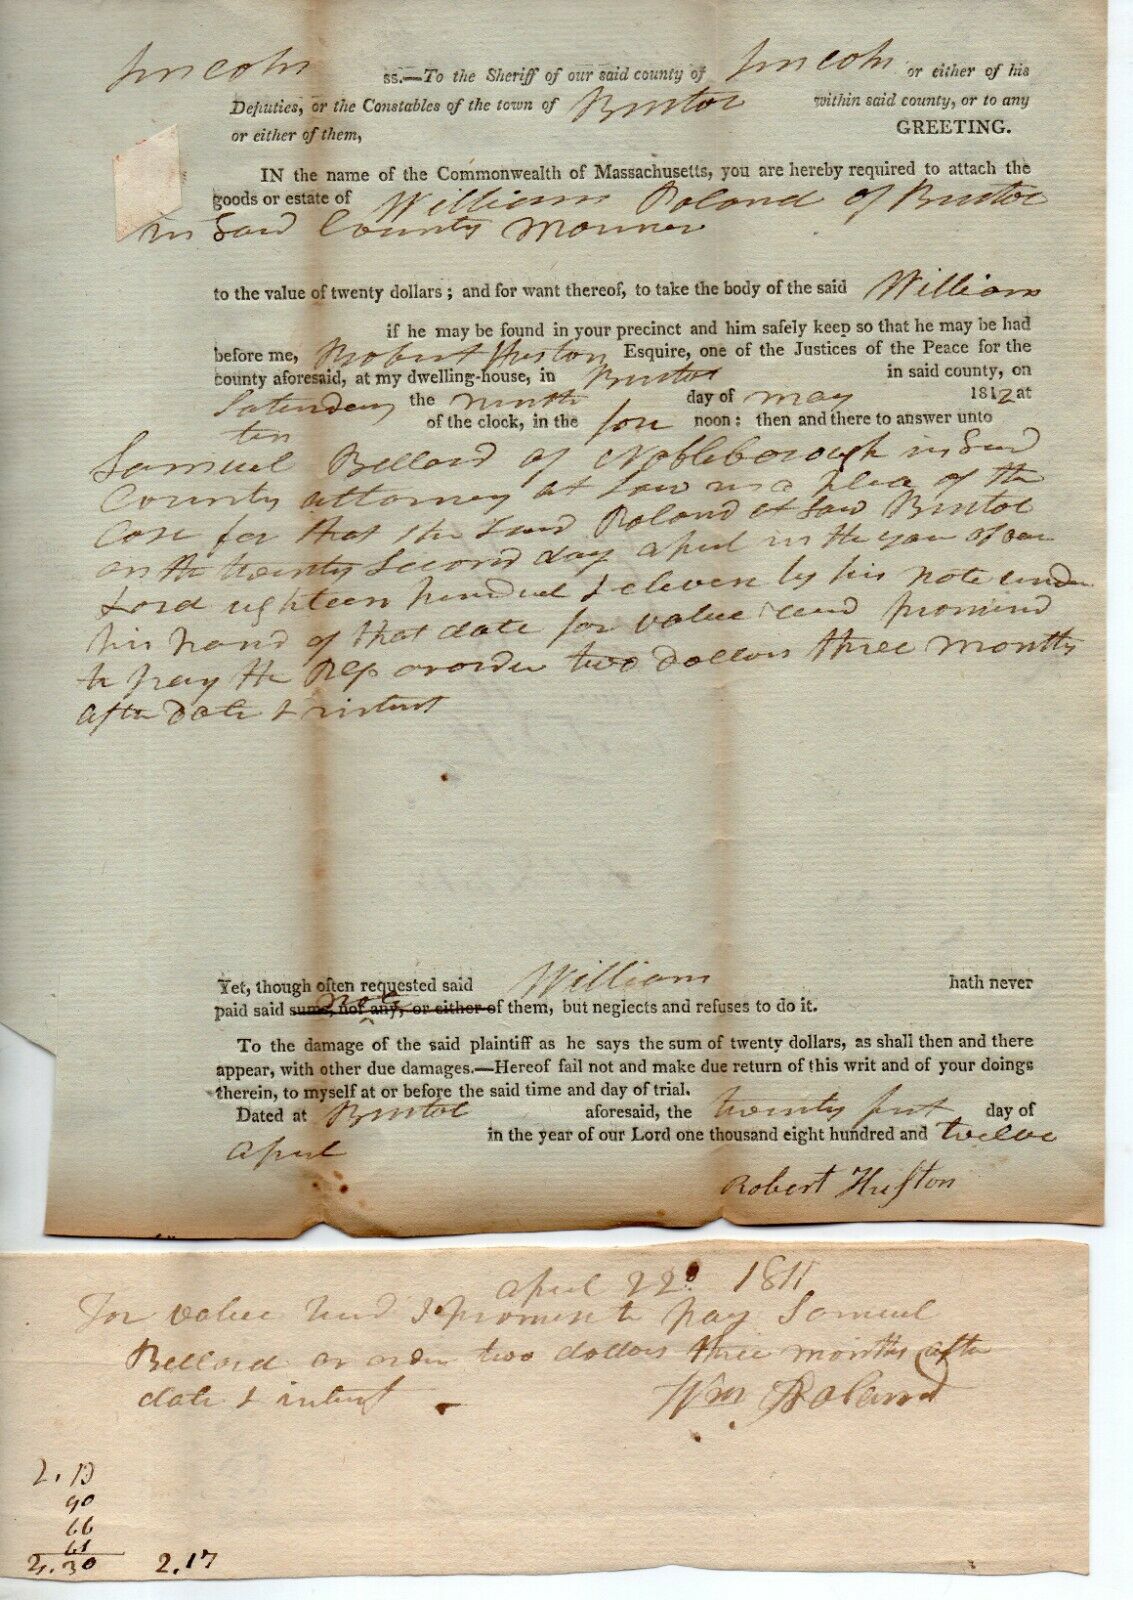 Lincoln ss.—To the Sheriff of our said county of Lincoln or either of his
Deputies, or the Constables of the town of Bristol within said county, or to any
or either of them, GREETING.
IN the name of the Commonwealth of Massachusetts, you are hereby required to attach the
goods or estate of William Roland of Bristol
in Said County Marriner
to the value of twenty dollars; and for want thereof, to take the body of the said William
if he may be found in your precinct and him safely keep so that he may be had
before me, Robert Huston Esquire, one of the Justices of the Peace for the
county aforesaid, at my dwelling-house, in Bristol in said county, on
Saturday the ninth day of may 1812 at
ten of the clock, in the fore noon: then and there to answer unto
Samuel Bellard of Nobleborough in Said
County attorney at Law in a plea of the
Case for that the Said Roland at Said Bristol
on the twenty Second day april in the year of our
Lord eighteen hundred & eleven by his note under
his hand of that date for value recd promised
to pay the Plf or order two dollars three months
after date & intrest
Yet, though often requested said William hath never
paid said sums, nor any, or either of them, but neglects and refuses to do it.
To the damage of the said plaintiff as he says the sum of twenty dollars, as shall then and there
appear, with other due damages.—Hereof fail not and make due return of this writ and of your doings
therein, to myself at or before the said time and day of trial.
Dated at Bristol aforesaid, the twenty first day of
april in the year of our Lord one thousand eight hundred and twelve
Robert Huston
april 22d 1811
For value recd I promise to pay Samuel
Bellard or order two dollars three months after
date & intrest Wm Roland
2.13
90
66
61
4.30 2.17